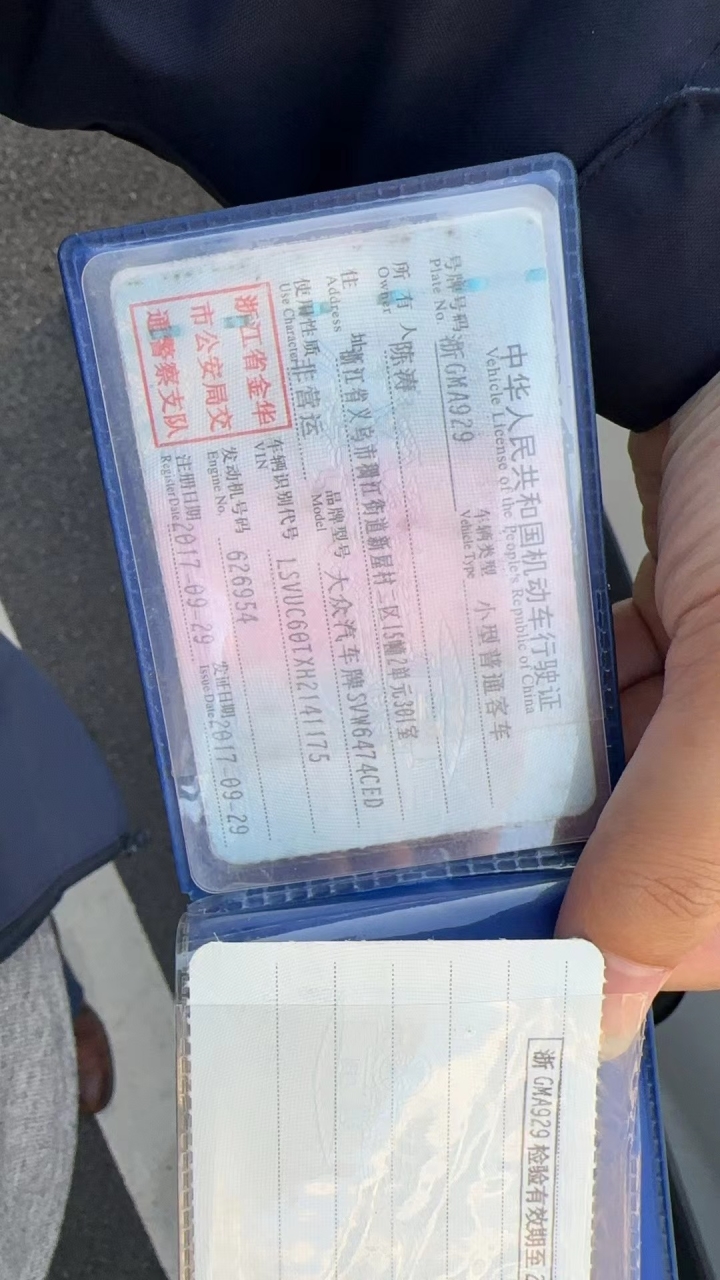 中华人民共和国机动车行驶证
Vehicle License of the People's Republic of China
号牌号码 浙GMA929 车辆类型 小型普通客车
Plate No. Vehicle Type
所有人 陈涛
Owner
住址 浙江省义乌市稠江街道新屋村二区15幢2单元301室
Address
使用性质 非营运 品牌型号 大众汽车牌SVW6474CED
Use Character Model
浙江省金华
市公安局交
通警察支队
车辆识别代号 LSVUC60TXH2141175
VIN
发动机号码 626954
Engine No.
注册日期 2017-09-29 发证日期 2017-09-29
Register Date Issue Date
浙GMA929 检验有效期至 2